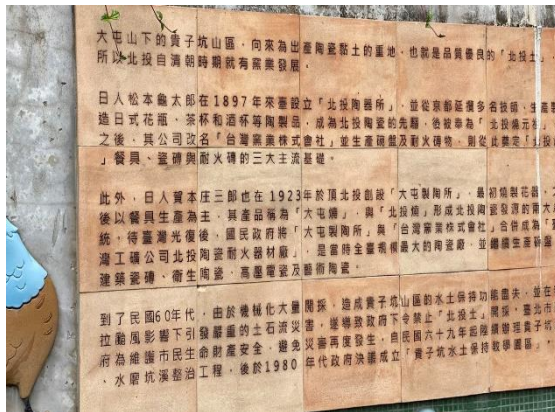 大屯山下的貴子坑山區,向來為出產陶瓷黏土的重地,也就是品質優良的「北投土」,
所以北投自清朝時期就有窯業發展。
日人松本龜太郎在1897年來臺設立「北投陶器所」,並從京都延攬多名技師,生產
造日式花瓶、茶杯和酒杯等陶製品,成為北投陶瓷的先驅,後被奉為「北投燒元祖
之後,其公司改名「台灣窯業株式會社」並生產碗盤及耐火磚物,則從此奠定「北投
」餐具、瓷磚與耐火磚的三大主流基礎。
此外,日人賀本庄三郎也在1923年於頂北投創設「大屯製陶所」,最初燒製花器,
後以餐具生產為主,其產品稱為「大屯燒」,與「北投燒」形成北投陶瓷發源的兩大
統,待臺灣光復後,國民政府將「大屯製陶所」與「台灣窯業株式會社」合併成為「
灣工礦公司北投陶瓷耐火器材廠」,是當時全臺規模最大的陶瓷廠,並繼續生產碗盤
建築瓷磚、衛生陶瓷,高壓電瓷及藝術陶瓷。
到了民國60年代,由於機械化大量開採,造成貴子坑山區的水土保持功能盡失,並在
拉颱風影響下引發嚴重的土石流災害,遂導致政府下令禁止「北投土」開採,臺北市
府為維護市民生命財產安全,避免災害再度發生,自民國六十九年起陸續辦理貴子坑
、水磨坑溪整治工程,後於1980年代政府決議成立「貴子坑水土保持教學園區」。